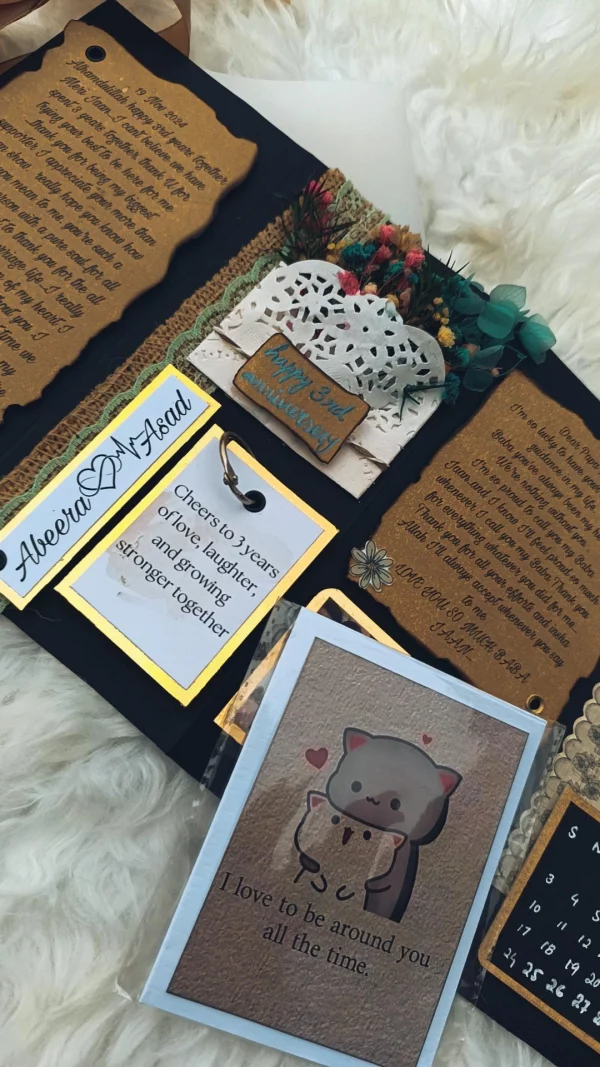 19 Nov 2024
Alhamdulillah happy 3rd years together
Meri Jaan.. I can't believe we have
spent 3 years together, thank U for
trying your best to be here for me
thank you for being my biggest
supporter, I appreciate your more than
show really hope you know how
you mean to me, you're such a
person with a pure soul, for all
to thank you for the all
marriage life.. I really
of my heart I
happy 3rd
anniversary
Abeera Asad
Cheers to 3 years
of love, laughter,
and growing
stronger together
Dear Papa
I'm so lucky to have
guidance in my
Baba you've always been my
We're nothing without you
I'm so proud to call you my Baba
Jaan, and I know I'll feel proud so much
whenever I call you my Baba Thank you
for everything whatever you did for me..
Thank you for all your efforts and insha
Allah I'll always accept whenever you say
to me
LOVE YOU SO MUCH BABA
JAAN..
I love to be around you
all the time.
S
3 4
10 11 12
17 18 19 20
24 25 26 27